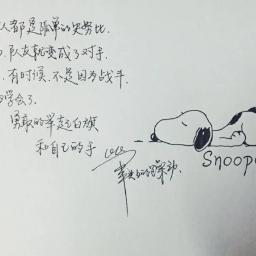 人都是孤单的史努比.
队友就变成了对手.
有时候.不是因为战斗.
学会了.
勇敢的举起白旗
和自己的手
Snoop